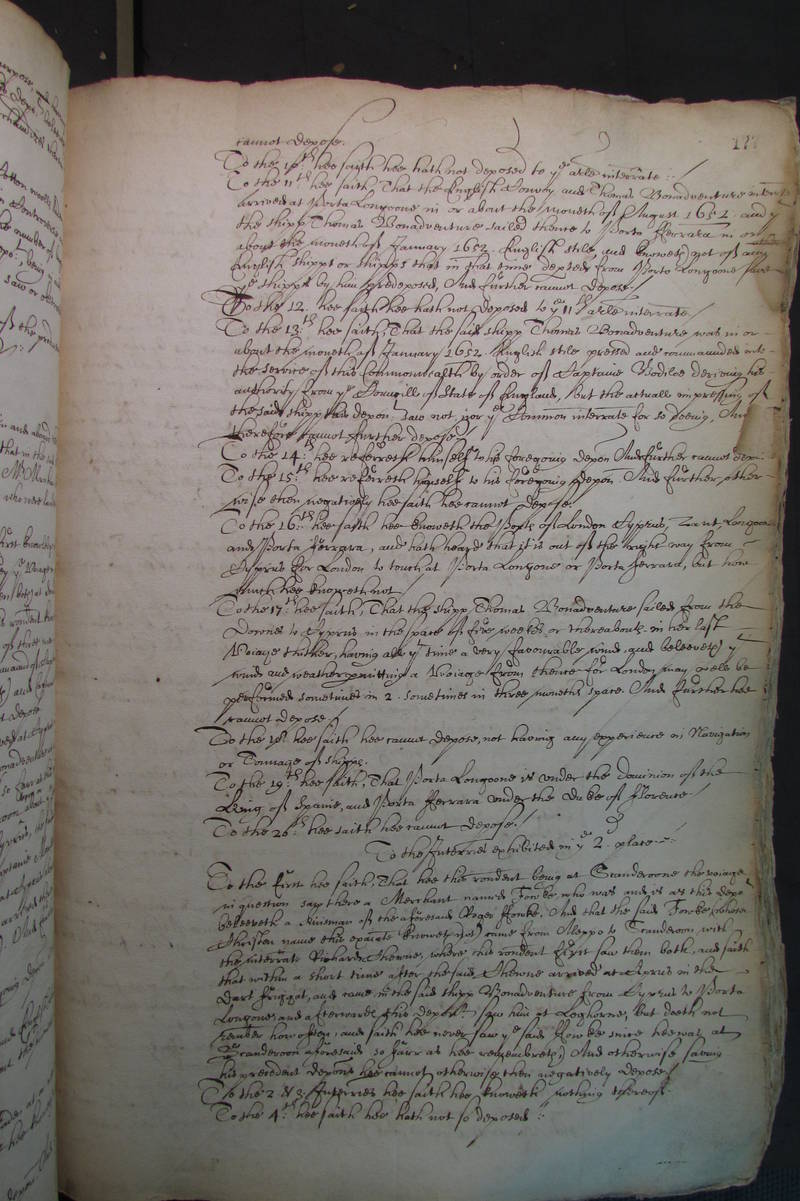 177
cannot depose.
To the 10th hee saith hee hath not deposed to ye arle interrate :
To the 11th hee saith, That the English Convoy and Thomas Bonadventure
arrived at Porta Longone in or about the moneth of August 1652. and
the shipp Thomas Bonadventure sailed thence to Porto Ferrara in or
about the moneth of January 1652. English stile, and knoweth not of any
English shipp or shipps that in that time departed from Porto Longone save
ye shipps by him predeposed, And further cannot depose.
To the 12. hee saith hee hath not deposed to ye 11th arle interrate.
To the 13th hee saith, That the said shipp Thomas Bonadventure was in or
about the moneth of January 1652. English stile pressed and commanded into
the service of this Commonwealth by order of Captaine Bodiloe deriving his
authority from ye Councill of State of England, but the actuall impressing of
the said shipp this depont saw not, nor ye Commission interrate for so doeing, And
therefore cannot further depose.
To the 14: hee referreth himselfe to his foregoeing depon And further cannot
To the 15th hee referreth himselfe to his foregoeing depon And further other-
wise then negatively hee saith hee cannot depose.
To the 16th hee saith hee knoweth the Ports of London Cyprus, Zant, Longone
and Porta Ferrara, and hath heard that it is out of the right way from
Cyprus for London to touch at Porta Longone or Porta Ferrara, but how
much hee knoweth not
To the 17th hee saith, That the shipp Thomas Bonadventure sailed from the
Downes to Cyprus in the space of five weekes or thereabouts in her last
Voiage thither, having all ye time a very favourable wind, and beleeveth ye
wind and weather permitting a Voiage from thence for London may well be
performed sometimes in 2. sometimes in three moneths space. And further hee
cannot depose.
To the 18th hee saith hee cannot depose, not having any experience in Navigation
or Tonnage of shipps.
To the 19th hee saith, That Porta Longone is under the dominion of the
King of Spaine, and Porta Ferrara under the Duke of Florence.
To the 20th hee saith hee cannot depose.
To the Interries exhibited in ye 2. place
To the first hee saith, That hee this rendent being at Scanderoone the voiage
in question saw there a Merchant named Fowke, who was and is as this depot
beleeveth a kinsman of the aforesaid Roger Fowke. And that the said Fowke (whose
Christen name this exaiate knoweth not) came from Aleppo to Scanderoon, with
the interrate Richard Chowne, where this rendent first saw them both, and saith
that within a short time after the said Chowne arrived at Cyprus in the
Dart friggat, and came in the said shipp Bonadventure from Cyprus to Porto
Longone, and afterwards this depont saw him at Leghorne, but doeth not
remember how often, and saith hee never saw ye said Fowke since hee was at
Scanderoon aforesaid so farr as hee remembreth, And otherwise saving
his precedent depons hee cannot otherwise then negatively depose.
To the 2. & 3. Interries hee saith hee knoweth nothing thereof.
To the 4th hee saith hee hath not so deposed :